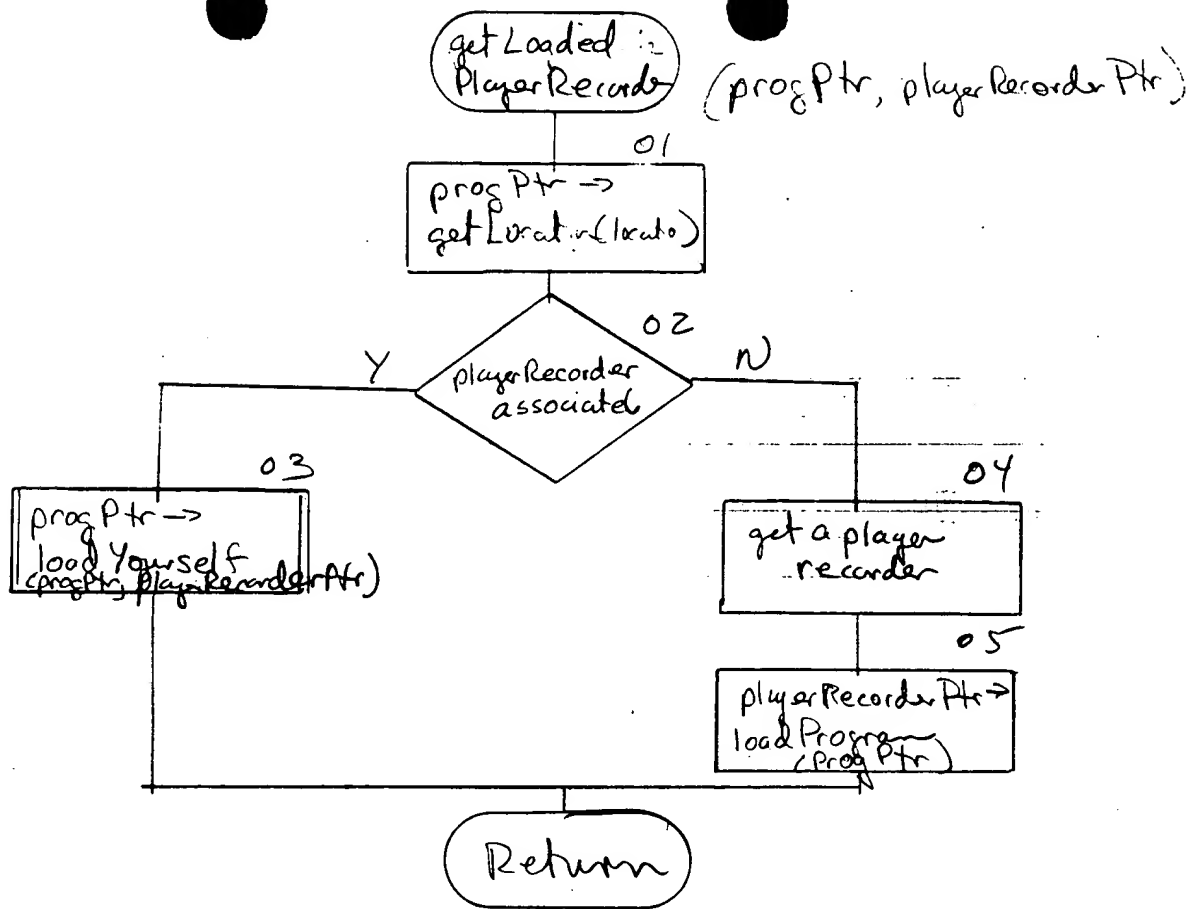 getLoaded
PlayerRecorder
(progPtr, playerRecorderPtr)
01
progPtr →
getLocation(locatio)
02
playerRecorder
associated
Y
N
03
progPtr →
loadYourself
(progPtr, playerRecorderPtr)
04
get a player
recorder
05
playerRecorderPtr →
loadProgram
(ProgPtr)
Return